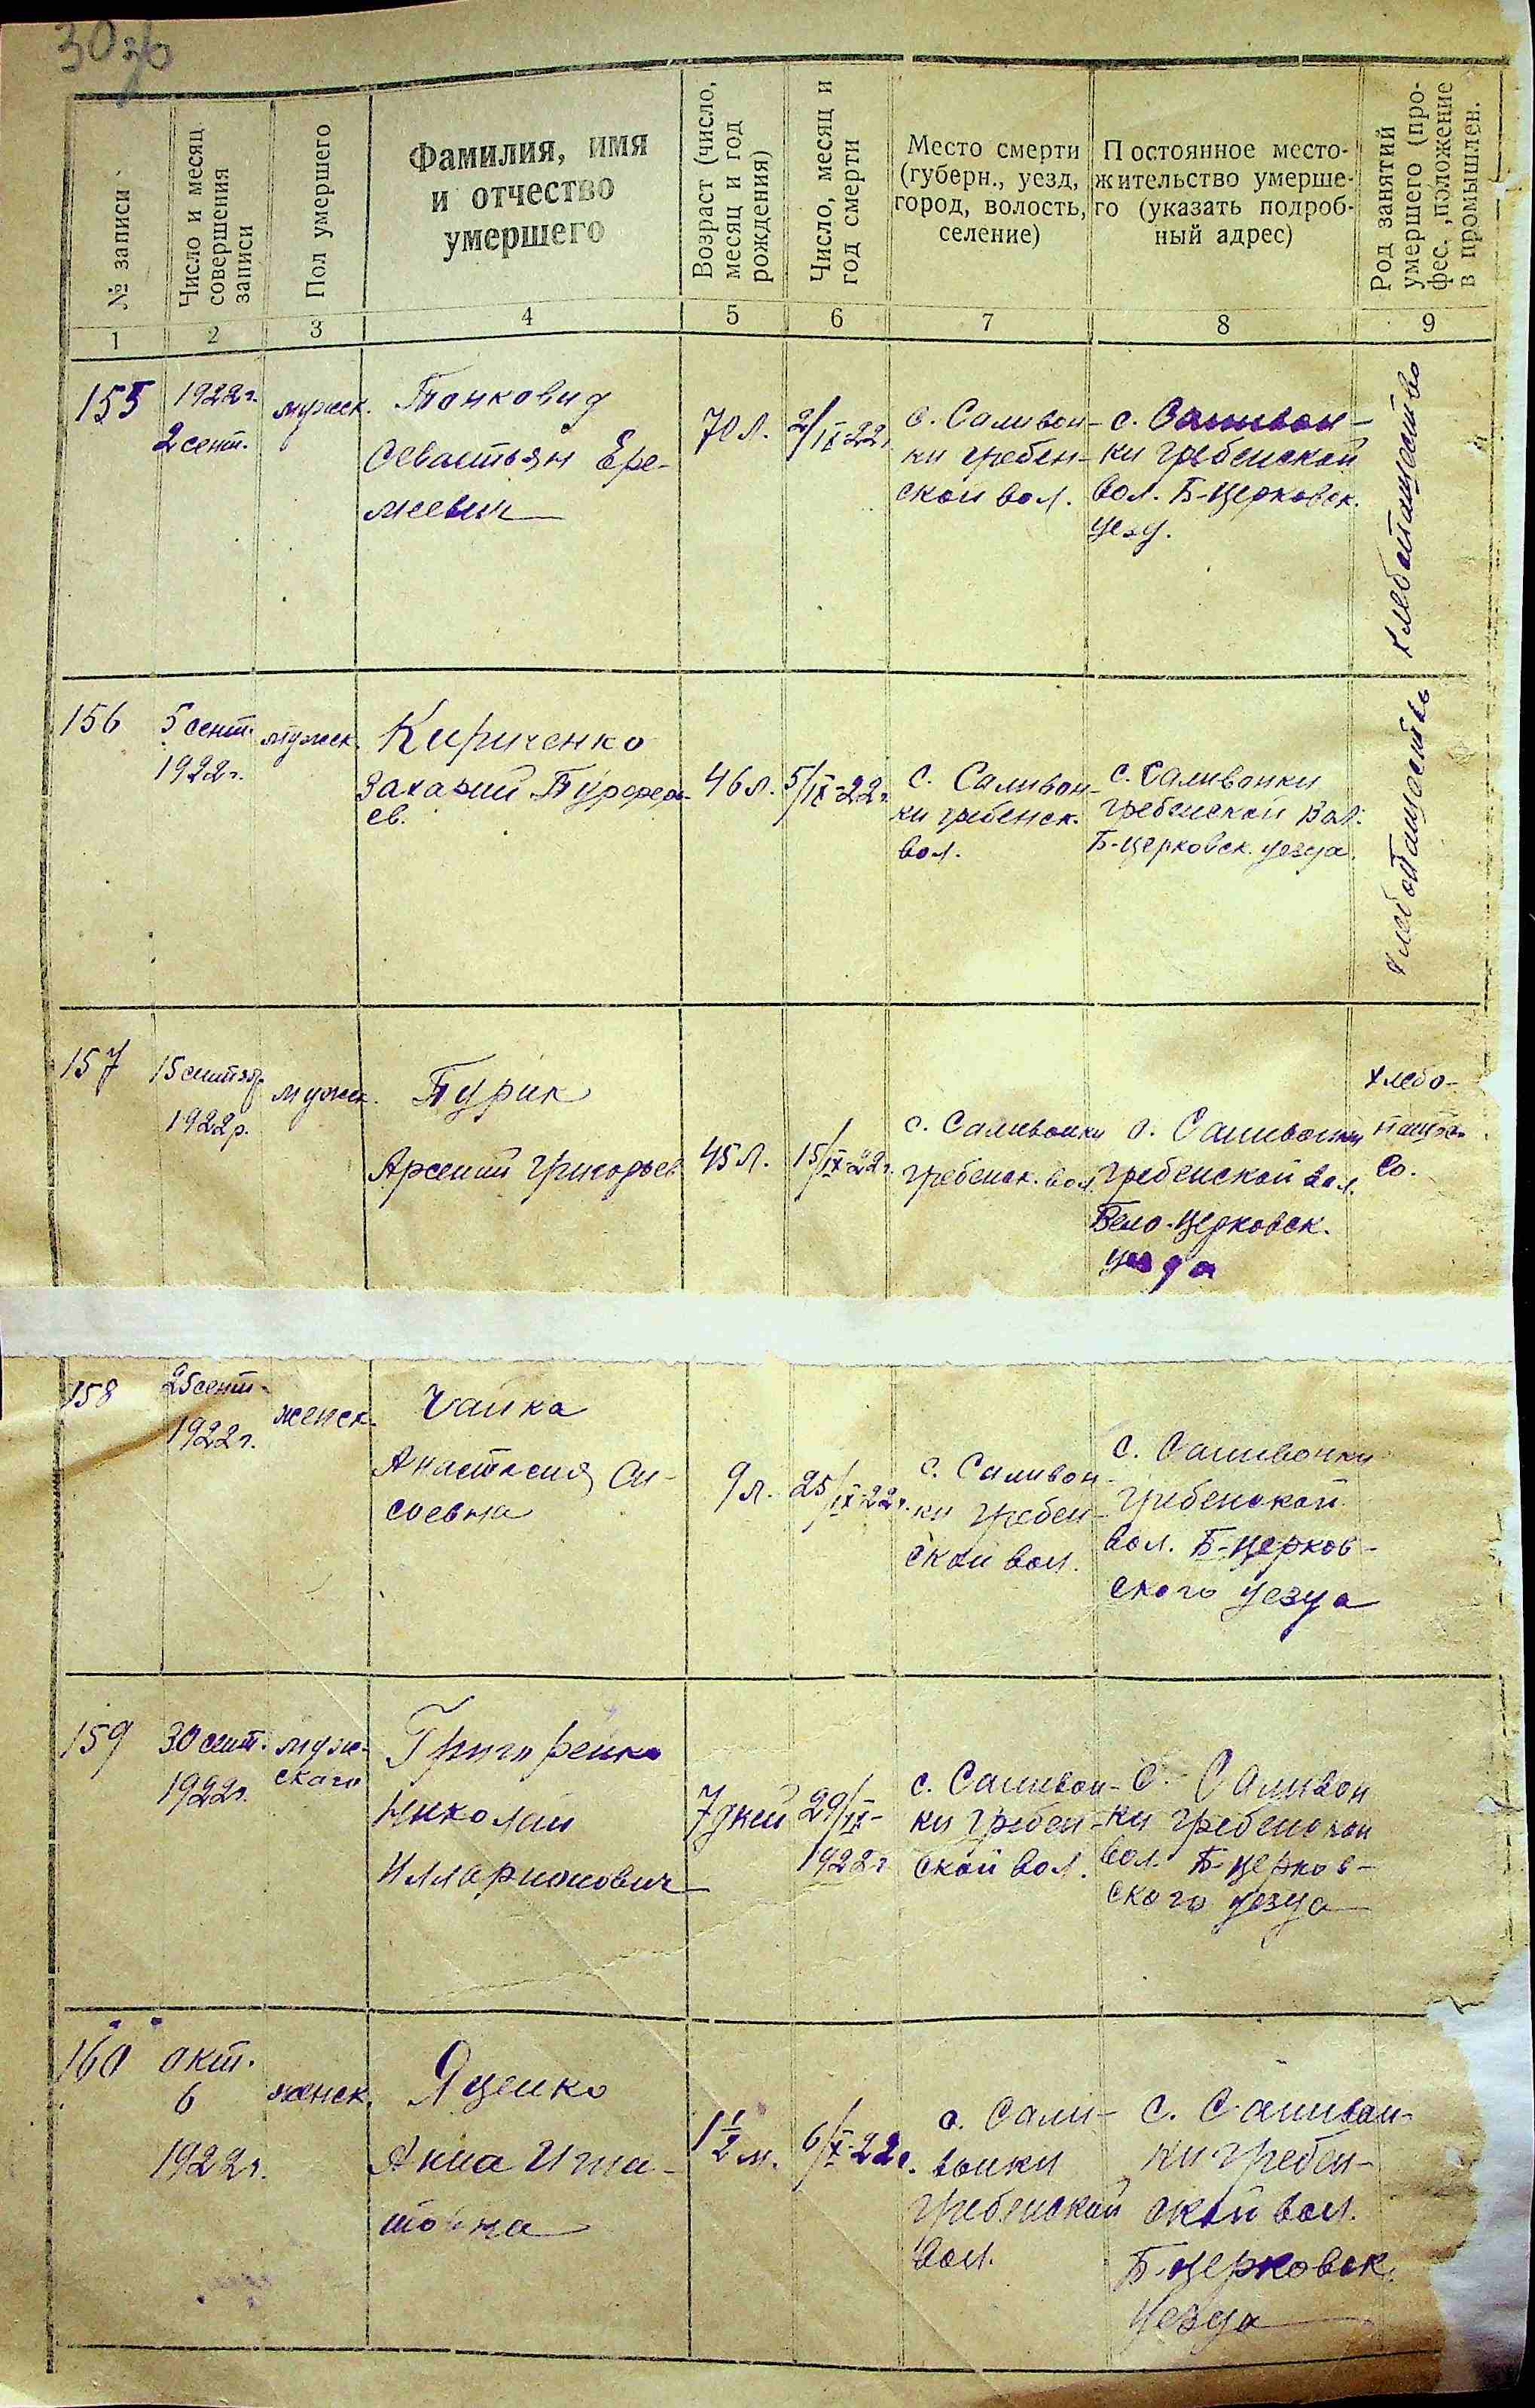 30 зв
№ записи
Число и месяц
совершения
записи
Пол умершего
Фамилия, имя
и отчество
умершего
Возраст (число,
месяц и год
рождения)
Число, месяц и
год смерти
Место смерти
(губерн., уезд,
город, волость,
селение)
Постоянное место-
жительство умерше-
го (указать подроб-
ный адрес)
Род занятий
умершего (про-
фес., положение
в промышлен.
1 2 3 4 5 6 7 8 9
155
1922 г.
2 сент.
мужск.
Севастьян Ере-
меевич
70 л.
2/IX 22 г.
с. Саливон-
ки гребен-
ской вол.
с. Саливон-
ки гребенской
вол. Б-церковск.
уезд.
Хлебопашество
156
5 сент.
1922 г.
мужск.
Кириченко
Захарий
ев.
46 л.
5/IX-22 г.
с. Саливон-
ки гребенск.
вол.
с. Саливонки
гребенской вол.
Б-церковск. уезда.
Хлебопашество
157
15 сентяб.
1922 р.
мужск.
Пурик
Арсений Григорьев.
45 л.
15/IX-22 г.
с. Саливонки
гребенск. вол.
с. Саливонки
гребенской вол.
Бело-Церковск.
уезда
Хлебо-
со.
158
25 сент.
1922 г.
женск.
Чайка
Анастасия Сы-
соевна
9 л.
25/IX-22 г.
с. Саливон-
ки гребен-
ской вол.
с. Саливонки
гребенской
вол. Б-церков-
ского уезда
159
30 сент.
1922 г.
муж-
ского
Григоренко
Николай
Илларионович
7 дней
29/IX-
1922 г
с. Саливон-
ки гребен-
ской вол.
с. Саливон
ки гребенской
вол. Б-церков-
ского уезда
160
окт.
6
1922 г.
женск.
Яценко
Анна Игна-
товна
1 1/2 м.
6/X-22 г.
с. Сали-
вонки
гребенской
вол.
с. Саливон-
ки гребен-
ской вол.
Б-церковск.
уезда